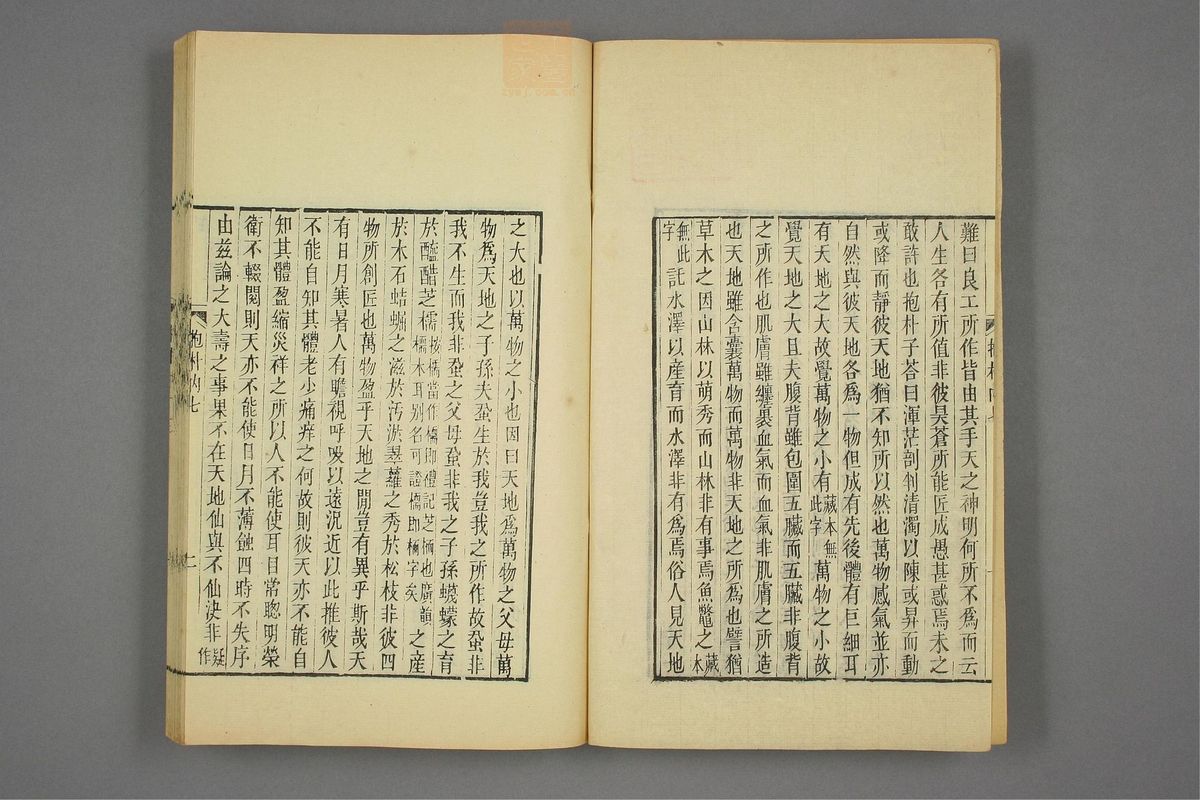 難曰良工所作皆由其手天之神明何所不爲而云
人生各有所值非彼昊蒼所能匠成愚甚惑焉未之
敢許也抱朴子荅曰渾茫剖判清濁以陳或昇而動
或降而靜彼天地猶不知所以然也萬物感氣並亦
自然與彼天地各爲一物但成有先後體有巨細耳
有天地之大故覺萬物之小有藏本無此字萬物之小故
覺天地之大且夫腹背雖包圍五臟而五臟非腹背
之所作也肌膚雖纏裹血氣而血氣非肌膚之所造
也天地雖含囊萬物而萬物非天地之所爲也譬猶
草木之因山林以萌秀而山林非有事焉魚鼈之藏本
無此字託水澤以産育而水澤非有爲焉俗人見天地
之大也以萬物之小也因曰天地爲萬物之父母萬
物爲天地之子孫夫蝨生於我豈我之所作故蝨非
我不生而我非蝨之父母蝨非我之子孫蠛蠓之育
於醯醋芝檽按檽當作檽即禮記芝栭也廣韻檽木耳别名可證檽即栭字矣之産
於木石蛣𧌑之滋於汚淤翠蘿之秀於松枝非彼四
物所創匠也萬物盈乎天地之閒豈有異乎斯哉天
有日月寒暑人有瞻視呼吸以遠況近以此推彼人
不能自知其體老少痛痒之何故則彼天亦不能自
知其體盈縮災祥之所以人不能使耳目常聰明榮
衛不輟閡則天亦不能使日月不薄蝕四時不失序
由兹論之大壽之事果不在天地仙與不仙決非疑作
抱朴内七
二